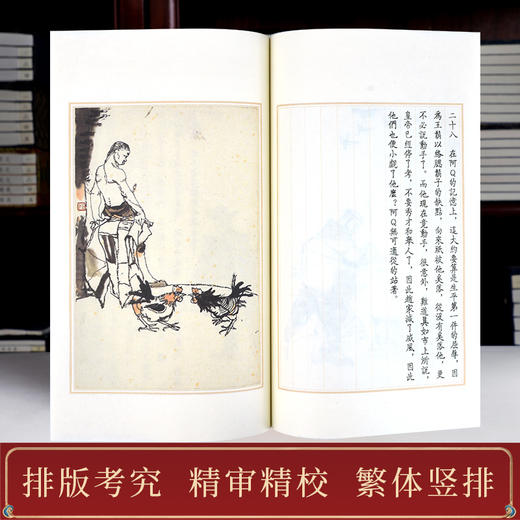 二十八　在阿Q的記憶上，這大約要算是生平第一件的屈辱，因
為王鬍以絡腮鬍子的缺點，向來祇被他奚落，從沒有奚落他，更
不必說動手了。而他現在竟動手，很意外，難道真如市上所說，
皇帝已經停了考，不要秀才和舉人了，因此趙家減了威風，因此
他們也便小覷了他麼？阿Q無可適從的站著。
排版考究 精审精校 繁体竖排